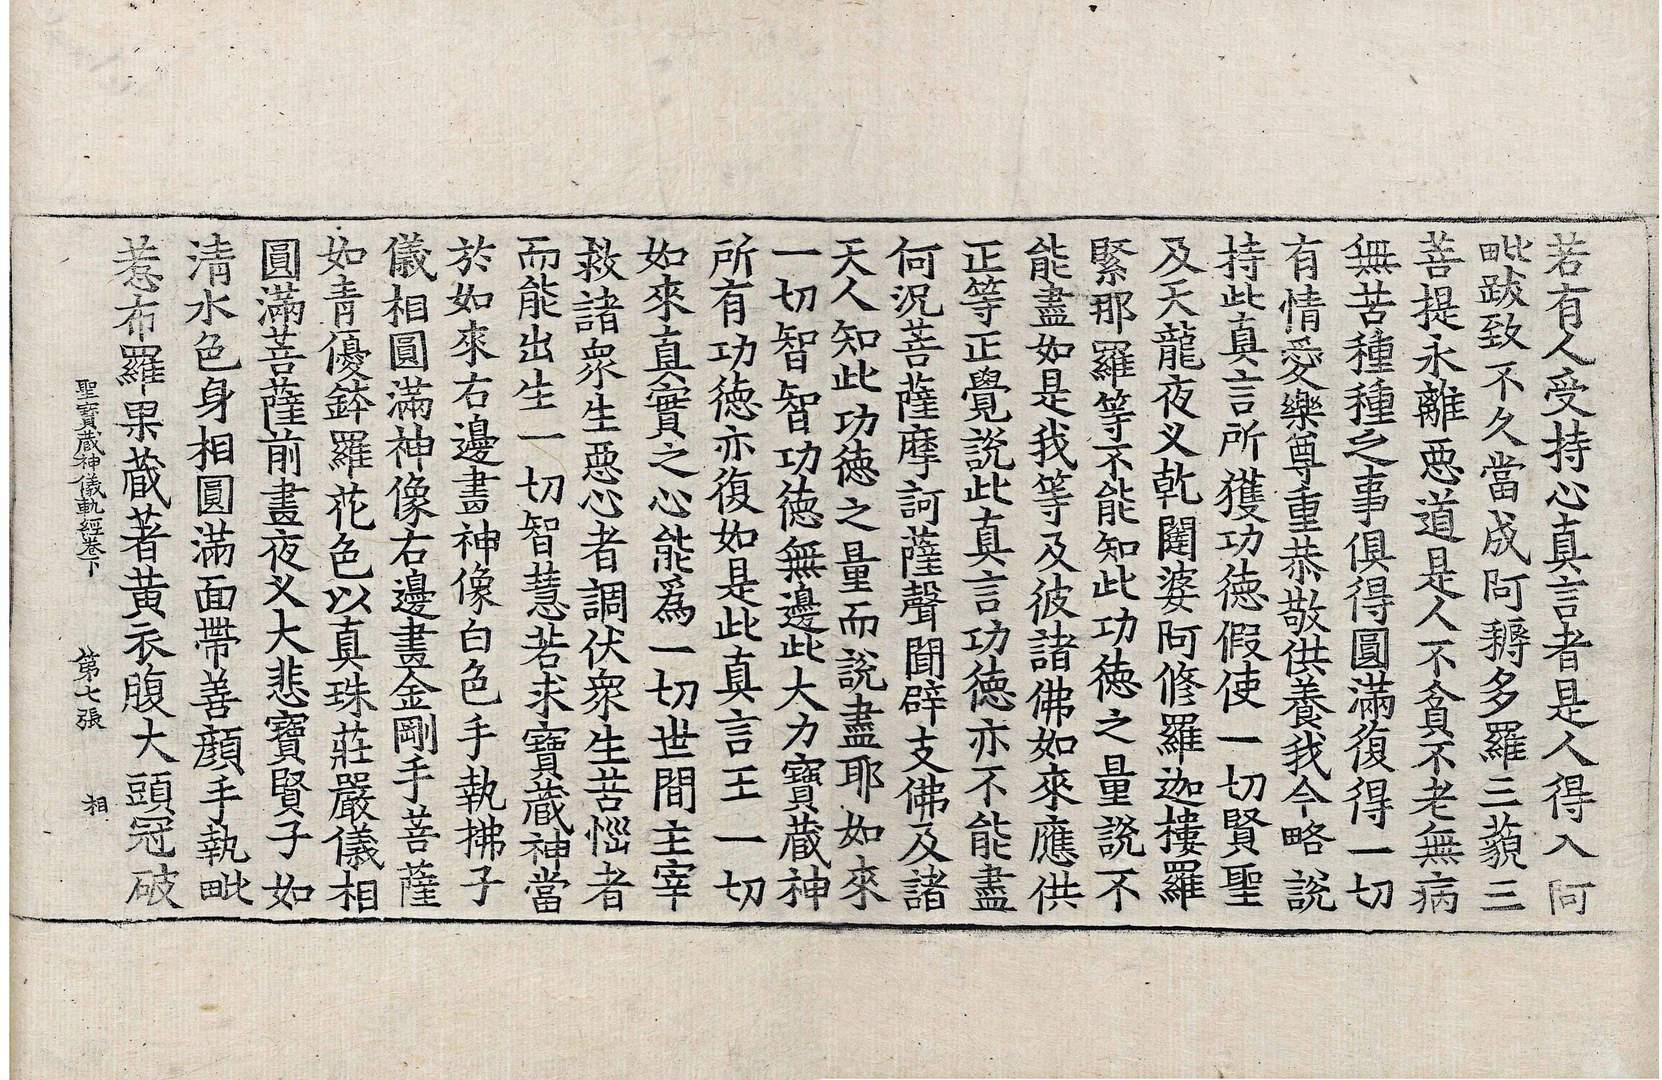 若有人受持心真言者是人得入阿
毗跋致不久當成阿耨多羅三藐三
菩提永離惡道是人不貪不老無病
無苦種種之事俱得圓滿復得一切
有情愛樂尊重恭敬供養我今略說
持此真言所獲功德假使一切賢聖
及天龍夜义乾闥婆阿修羅迦樓羅
緊那羅等不能知此功德之量說不
能盡如是我等及彼諸佛如來應供
正等正覺說此真言功德亦不能盡
何況菩薩摩訶薩聲聞辟支佛及諸
天人知此功德之量而說盡耶如來
一切智智功德無邊此大力寶藏神
所有功德亦復如是此真言王一切
如來真實之心能爲一切世間主宰
救諸衆生惡心者調伏衆生苦惱者
而能出生一切智慧若求寶藏神當
於如來右邊畫神像白色手執拂子
儀相圓滿神像右邊畫金剛手菩薩
如青優鉢羅花色以真珠莊嚴儀相
圓滿菩薩前畫夜义大悲寶賢子如
清水色身相圓滿面帶善顏手執毗
惹布羅果藏著黃衣腹大頭冠破
聖寶藏神儀軌經卷下 第七張 相